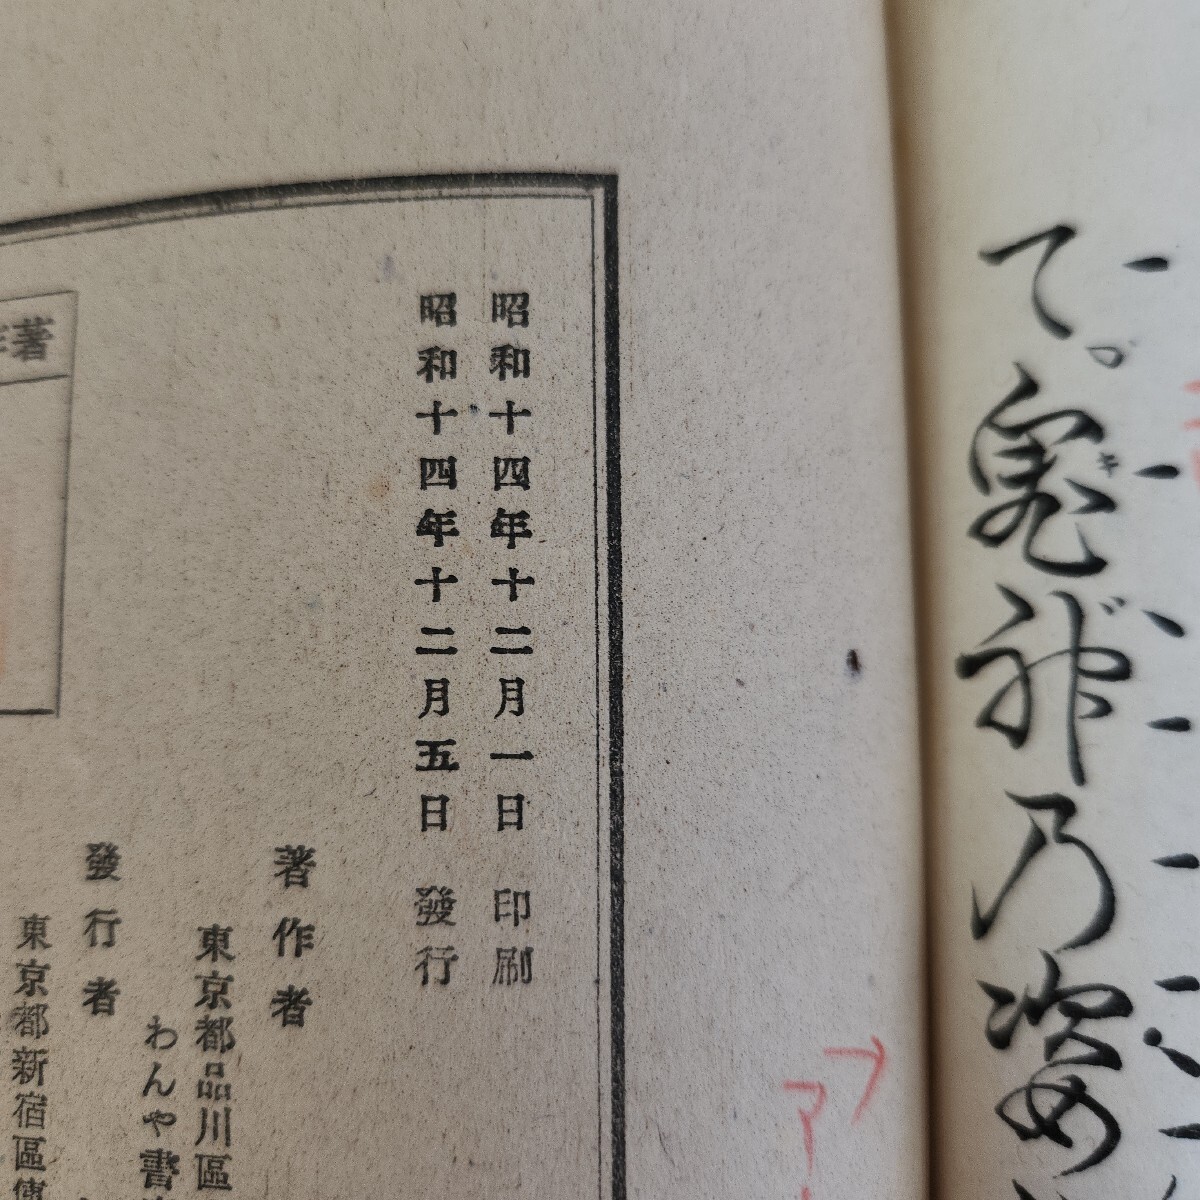 て。鬼神乃姿
キ
昭和十四年十二月一日 印刷
昭和十四年十二月五日 發行
著作者
東京都品川區
わんや書
發行者
東京都新宿區
著